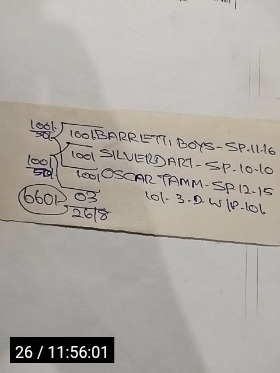 100/- 100/ BARRETTI BOYS-SP.11.16
50/-
100/ SILVERDART-SP.10-10
100/- 100/ OSCAR TAMM-SP.12-15
50/-
03 10/- 3.D.W/P-10/-
660/- 26/8
26 / 11:56:01